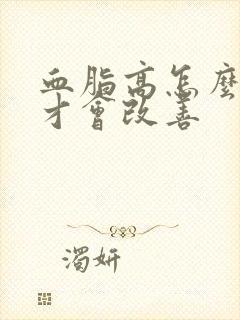 血脂高怎麼
才會改善
濁妍